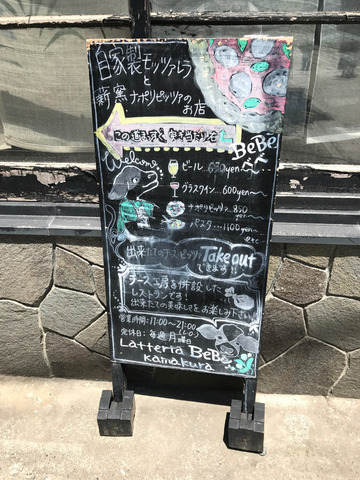 自家製モッツァレラ
と
薪窯ナポリピッツァのお店
この道まっすぐ 突き当たり左
BeBe
べべ
Welcome
ビール…650yen〜
グラスワイン…600yen〜
ナポリピッツァ…850yen〜
パスタ…1100yen〜
etc
出来たてのチーズ・ピッツァ Takeout
できます!!
チーズ工房を併設した
レストランです!
出来たての美味しさをお楽しみ下さい
営業時間:11:00〜21:00
(L.O)
定休日:毎週月曜日
Latteria BeBe
Kamakura